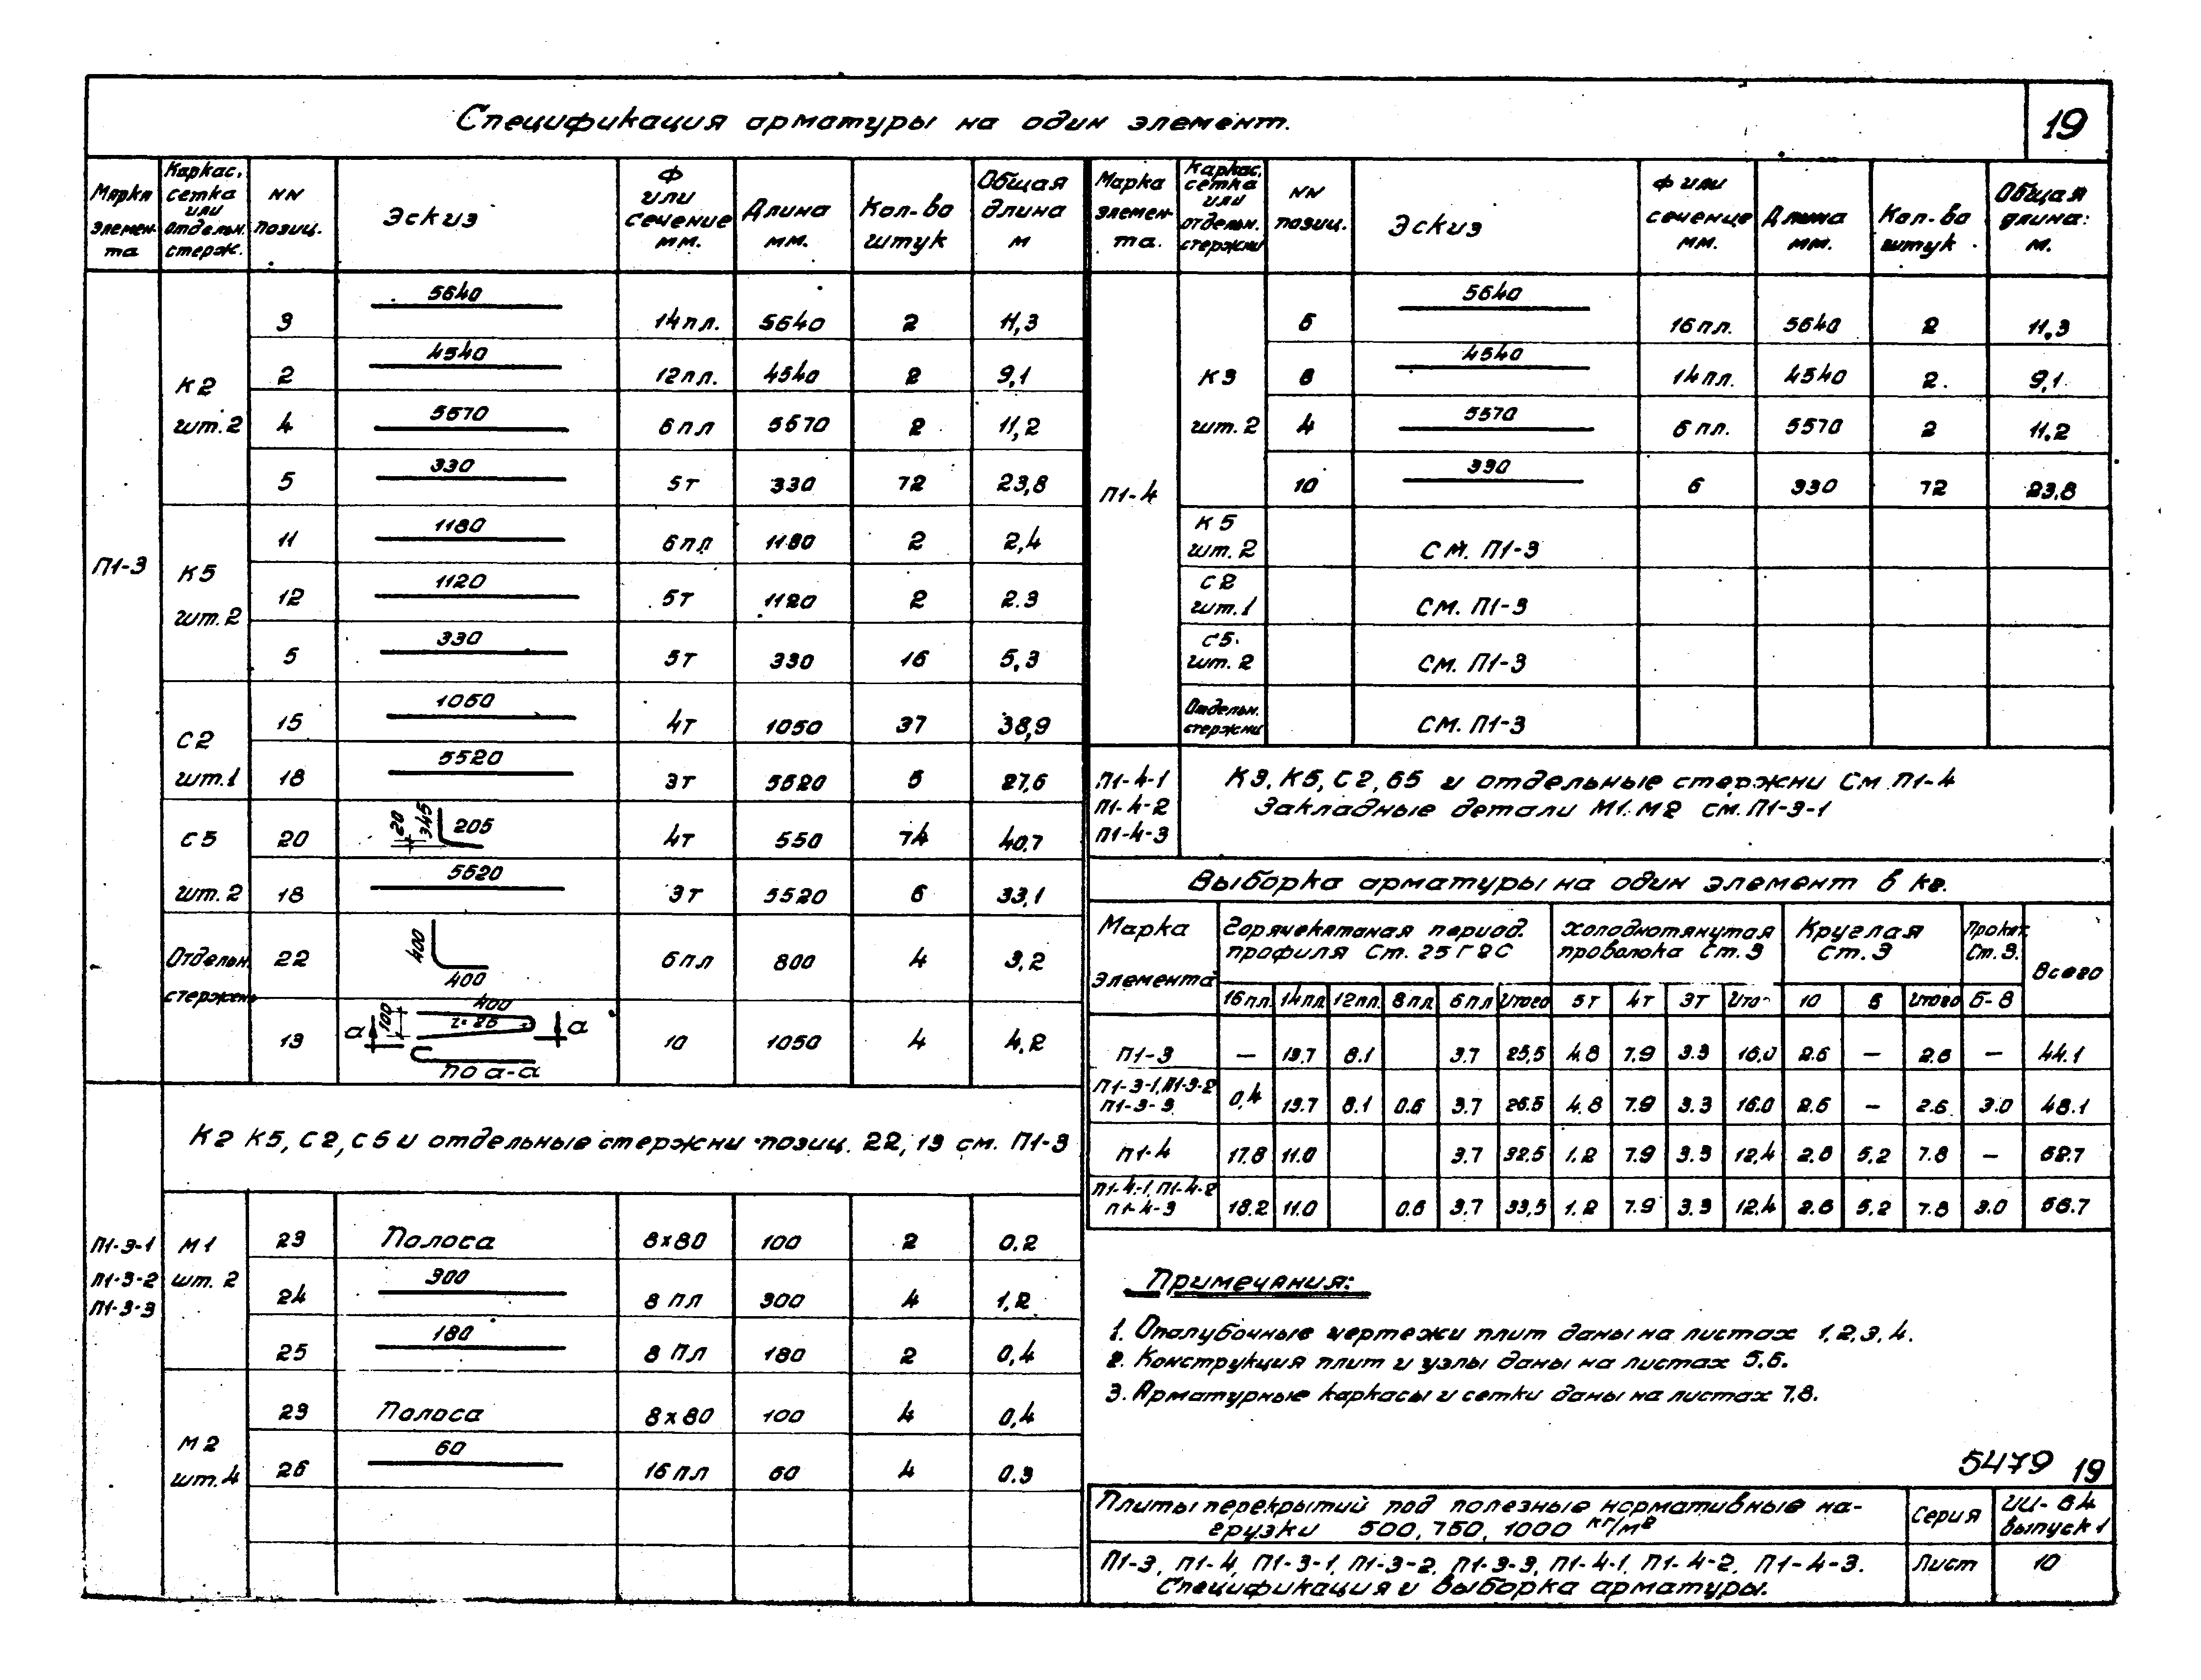 Спецификация арматуры на один элемент.
19
Марка элемен-та | Каркас, сетка или отдельн. стерж. | NN позиц. | Эскиз | Ф или сечение мм. | Длина мм. | Кол-во штук | Общая длина м
П1-3
К2 шт.2
3 | 5640 | 14пл. | 5640 | 2 | 11,3
2 | 4540 | 12пл. | 4540 | 2 | 9,1
4 | 5570 | 6пл | 5570 | 2 | 11,2
5 | 330 | 5т | 330 | 72 | 23,8
К5 шт.2
11 | 1180 | 6пл | 1180 | 2 | 2,4
12 | 1120 | 5т | 1120 | 2 | 2.3
5 | 330 | 5т | 330 | 16 | 5,3
С2 шт.1
15 | 1050 | 4т | 1050 | 37 | 38,9
18 | 5520 | 3т | 5520 | 5 | 27,6
С5 шт.2
20 | 20 345 205 | 4т | 550 | 74 | 40.7
18 | 5520 | 3т | 5520 | 6 | 33,1
Отдельн. стержни
22 | 400 400 | 6пл | 800 | 4 | 3,2
13 | а 100 400 а по а-а | 10 | 1050 | 4 | 4,2
К2 К5, С2, С5 и отдельные стержни позиц. 22, 13 см. П1-3
П1-3-1
П1-3-2
П1-3-3
М1 шт. 2
23 | Полоса | 8х80 | 100 | 2 | 0.2
24 | 300 | 8 пл | 300 | 4 | 1,2
25 | 180 | 8 пл | 180 | 2 | 0,4
М2 шт.4
23 | Полоса | 8х80 | 100 | 4 | 0,4
26 | 60 | 16пл | 60 | 4 | 0.3
Марка элемен-та. | Каркас, сетка или отдельн. стержни | NN позиц. | Эскиз | Ф или сечение мм. | Длина мм. | Кол-во штук | Общая длина: м.
П1-4
К3 шт.2
6 | 5640 | 16пл. | 5640 | 2 | 11,3
8 | 4540 | 14пл. | 4540 | 2. | 9,1
4 | 5570 | 6пл. | 5570 | 2 | 11.2
10 | 330 | 6 | 330 | 72 | 23,8
К5 шт.2 | см. П1-3
С2 шт.1 | см. П1-3
С5. шт.2 | см. П1-3
Отдельн. стержни | см. П1-3
П1-4-1
П1-4-2
П1-4-3
К3, К5, С2, С5 и отдельные стержни см П1-4
Закладные детали М1. М2 см. П1-3-1
Выборка арматуры на один элемент в кг.
Марка элемента | Горячекатаная период. профиля Ст. 25Г2С | Холоднотянутая проволока Ст.3 | Круглая Ст.3 | Прокат Ст.3. | Всего
16пл | 14пл | 12пл. | 8пл | 6пл | Итого | 5т | 4т | 3т | Ито- | 10 | 6 | Итого | δ-8
П1-3 | — | 13.7 | 8.1 | 3.7 | 25,5 | 4.8 | 7.9 | 3.3 | 16,0 | 2.6 | — | 2.6 | — | 44.1
П1-3-1, П1-3-2 П1-3-3 | 0,4 | 13.7 | 8.1 | 0.6 | 3.7 | 26.5 | 4.8 | 7.9 | 3.3 | 16.0 | 2.6 | — | 2.6 | 3.0 | 48.1
П1-4 | 17.8 | 11.0 | 3.7 | 32.5 | 1.2 | 7.9 | 3.3 | 12,4 | 2.6 | 5,2 | 7.8 | — | 52.7
П1-4-1, П1-4-2 П1-4-3 | 18.2 | 11.0 | 0.6 | 3.7 | 33,5 | 1.2 | 7.9 | 3.3 | 12.4 | 2.6 | 5.2 | 7.8 | 3.0 | 56.7
Примечания:
1. Опалубочные чертежи плит даны на листах 1, 2, 3, 4.
2. Конструкция плит и узлы даны на листах 5.6.
3. Арматурные каркасы и сетки даны на листах 7,8.
5479 19
Плиты перекрытий под полезные нормативные на-
грузки 500, 750, 1000 кг/м²
Серия
ИИ-04 выпуск 1
П1-3, П1-4, П1-3-1, П1-3-2, П1-3-3, П1-4-1, П1-4-2, П1-4-3.
Спецификация и выборка арматуры.
Лист
10